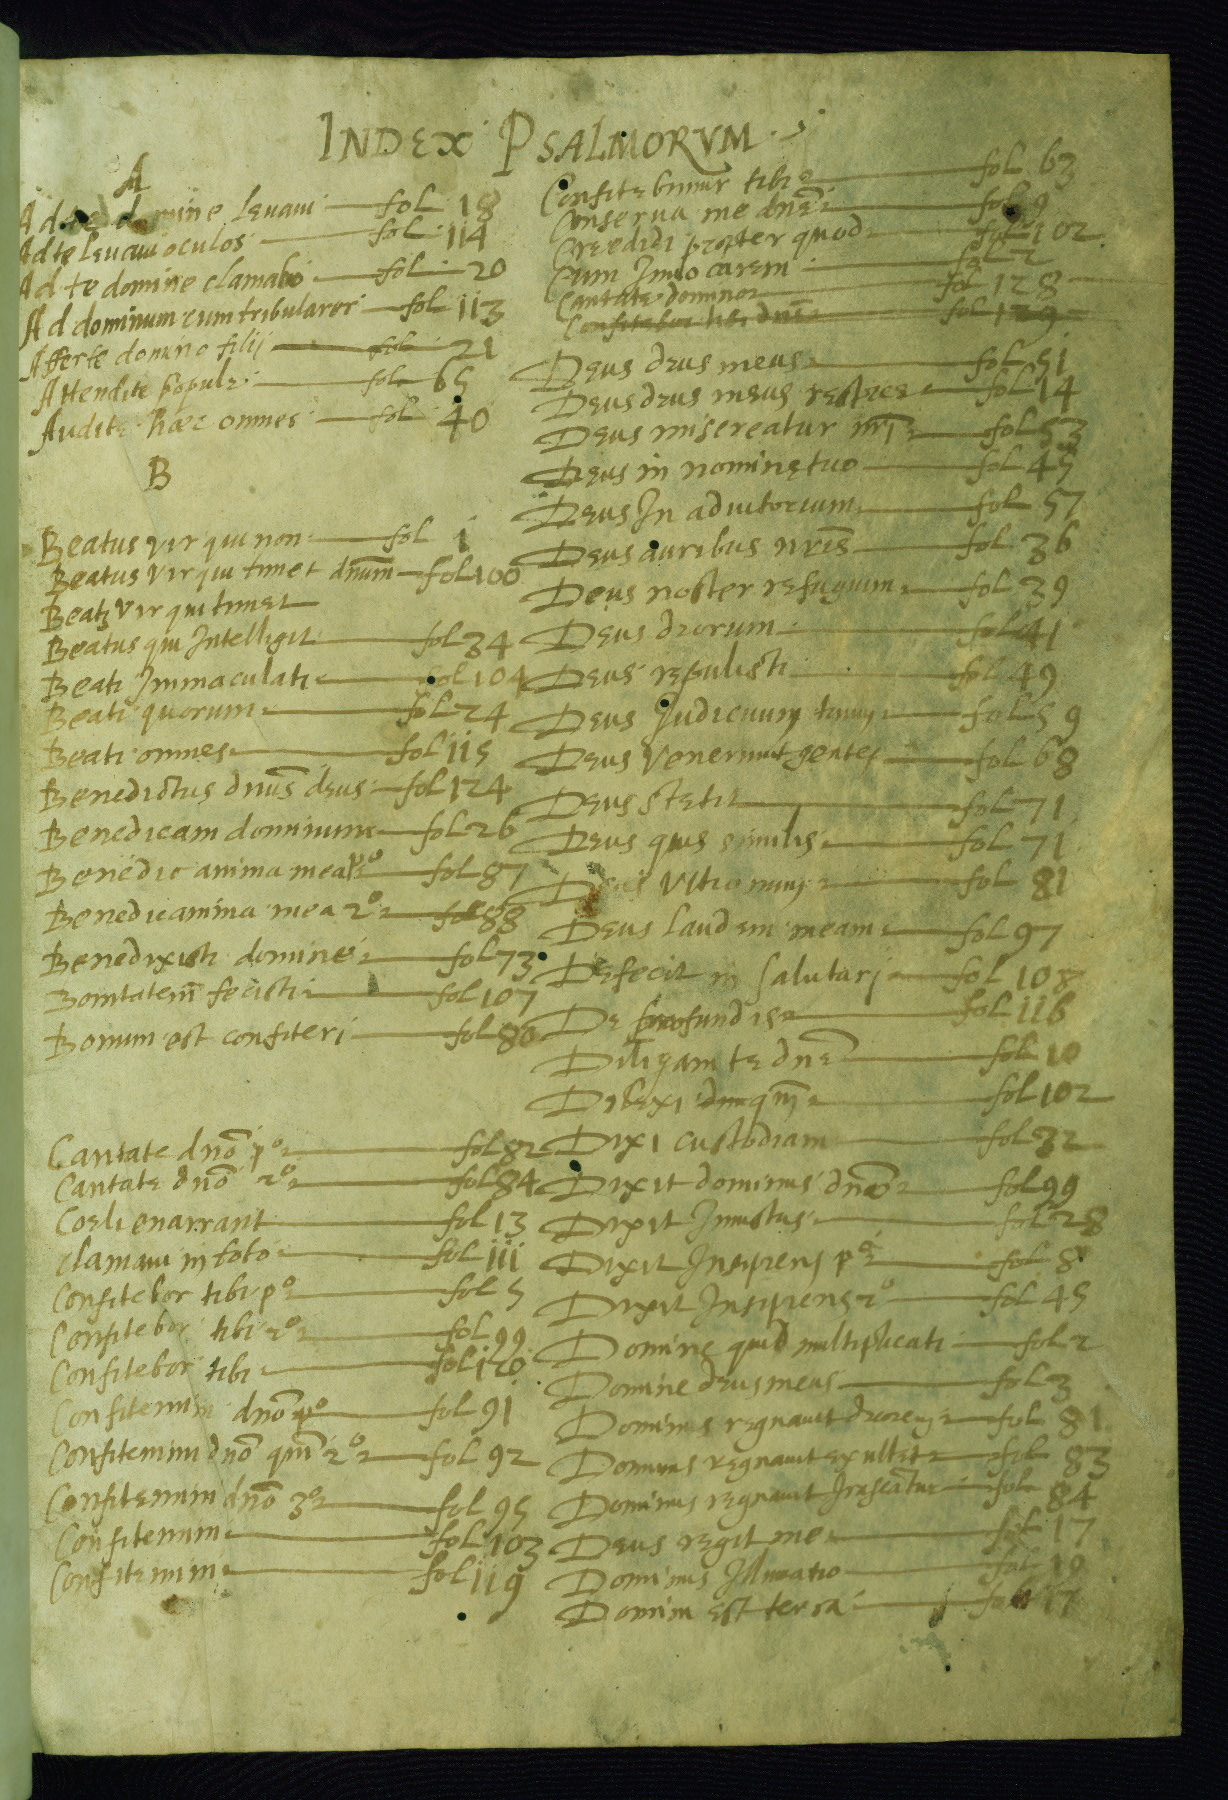 INDEX PSALMORVM
A
Ad te domine levavi fol 18
Ad te levavi oculos fol 114
Ad te domine clamabo fol 20
Ad dominum cum tribularer fol 113
Afferte domino filij fol 21
Attendite popule fol 65
Audite hæc omnes fol 40
B
Beatus vir qui non fol 1
Beatus vir qui timet dnum fol 100
Beatꝫ vir qui timet
Beatus qui Intelligit fol 34
Beati Immaculati fol 104
Beati quorum fol 24
Beati omnes fol 115
Benedictus dnus deus fol 124
Benedicam dominum fol 26
Benedic anima mea pº fol 87
Benedic anima mea 2º fol 88
Benedixisti domine fol 73
Bonitatem fecisti fol 107
Bonum est confiteri fol 80
Cantate dnō pº fol 82
Cantate dnō 2º fol 84
Coeli enarrant fol 13
Clamavi in toto fol 111
Confitebor tibi pº fol 5
Confitebor tibi 2º fol 99
Confitebor tibi fol 120
Confitemini dnō pº fol 91
Confitemini dnō qm̄ 2º fol 92
Confitemini dnō 3º fol 95
Confitemini fol 103
Confitemini fol 119
Confitebimur tibi fol 63
Conserva me dnē fol 9
Credidi propter quod fol 102
Cum Invocarem fol 2
Cantate domino fol 128
Confitebor tibi dnē fol 129
Deus deus meus fol 51
Deus deus meus respice fol 14
Deus misereatur nrī fol 53
Deus in nomine tuo fol 45
Deus In adiutorium fol 57
Deus auribus nrīs fol 36
Deus noster refugium fol 39
Deus deorum fol 41
Deus repulisti fol 49
Deus Judicium tuum fol 59
Deus venerunt gentes fol 68
Deus stetit fol 71
Deus quis similis fol 71
Deus Ultionum fol 81
Deus laudem meam fol 97
Defecit in salutari fol 108
De profundis fol 116
Diligam te dnē fol 10
Dilexi qm̄ fol 102
Dixi custodiam fol 32
Dixit dominus dnō fol 99
Dixit Iniustus fol 28
Dixit Insipiens pº fol 8
Dixit Insipiens 2º fol 45
Domine quid multiplicati fol 2
Domine deus meus fol 3
Dominus regnavit decorem fol 81
Dominus regnavit exultet fol 83
Dominus regnavit Irascantur fol 84
Deus regit me fol 17
Dominus Illuminatio fol 19
Domini est terra fol 17